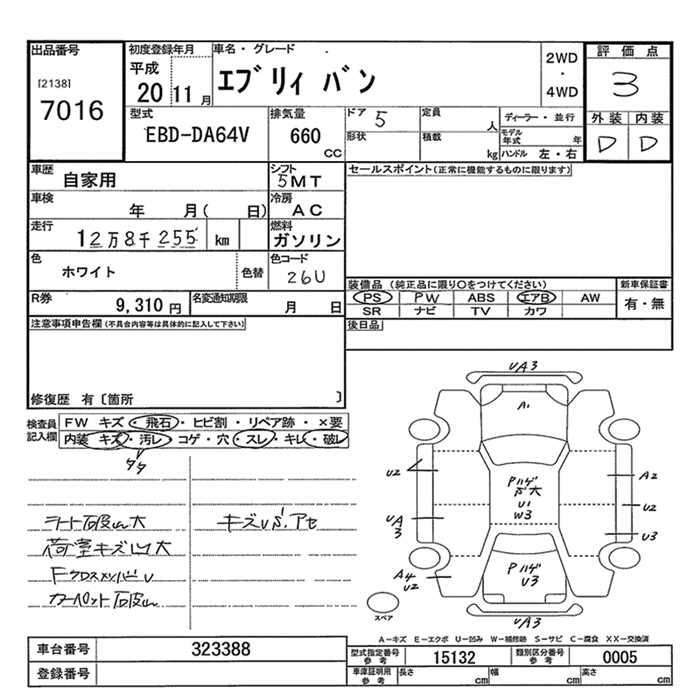 出品番号
[2138]
7016
初度登録年月
平成
20 11 月
車名・グレード
エブリィ バン
2WD
・
4WD
評価点
3
外装 内装
D D
型式
EBD-DA64V
排気量
660
CC
ドア 5
形状
定員
人
積載
kg
ディーラー・並行
モデル年式 年
ハンドル 左・右
車歴
自家用
シフト
5MT
車検
年 月( 日)
冷房
AC
走行
12万8千255 km
燃料
ガソリン
色
ホワイト
色替
色コード
26U
R券
9,310 円
名変通知期限
月 日
セールスポイント(正常に機能するものに限ります)
装備品 (純正品に限り○をつけてください)
PS PW ABS エアB AW
SR ナビ TV カワ
新車保証書
有・無
後日品
注意事項申告欄(不具合内容等は具体的に記入して下さい)
修復歴 有〔箇所 〕
検査員
記入欄
FW キズ・飛石・ヒビ割・リペア跡・×要
内装 キズ・汚レ コゲ・穴・スレ・キレ・破レ
シート破レ大
キズUサ.アセ
荷室キズ凹大
Fクロスメンバー U
カーペット破レ
UA3
A1
U2
UA3
A4
U2
Pハゲ
大
U1
W3
A2
U2
U3
Pハゲ
U3
UA3
スペア
A-キズ E-エクボ U-凹み W-補修跡 S-サビ C-腐食 XX-交換済
車台番号 323388
登録番号
型式指定番号
参考
15132
類別区分番号
参考
0005
車庫証明用
参考
長さ cm 幅 cm 高さ cm